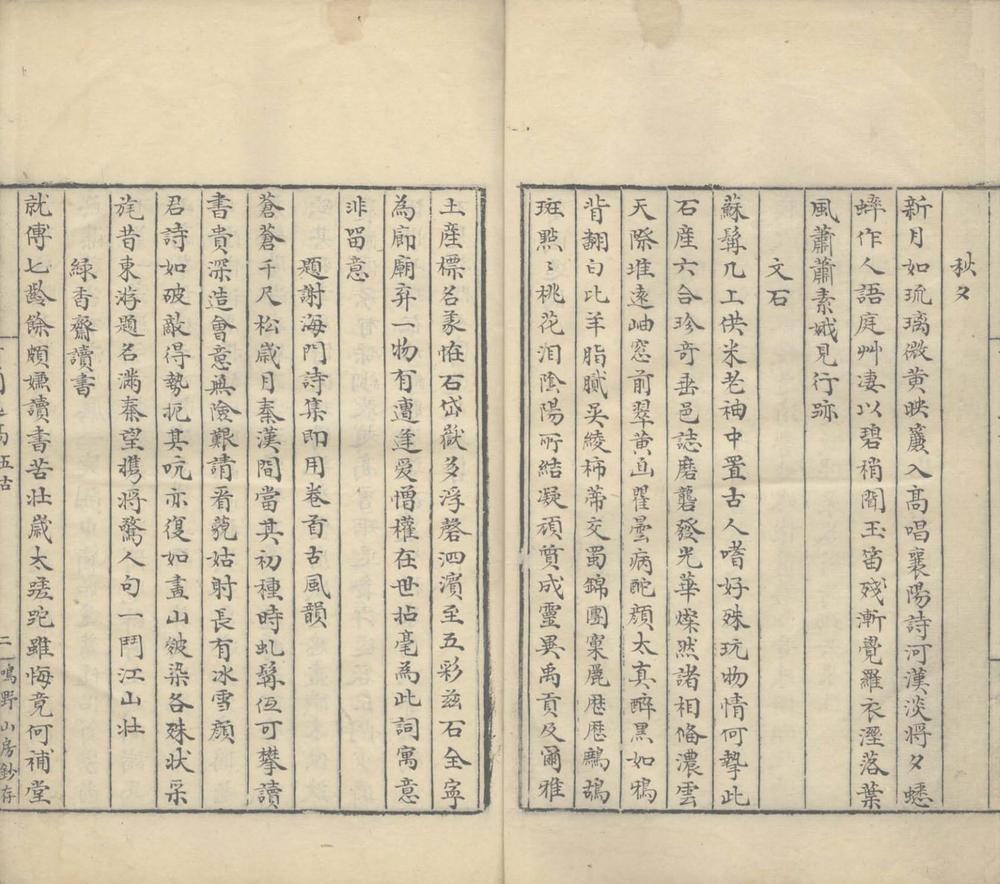 秋夕
新月如琉璃微黄映簾入高唱襄陽詩河漢淡將夕蟋
蟀作人語庭艸凄以碧稍聞玉笛殘漸覺羅衣溼落葉
風蕭蕭素娥見行跡
文石
蘇髯几上供米老袖中置古人嗜好殊玩物情何摯此
石產六合珍奇垂邑誌磨礱發光華燦然諸相俻濃雲
天際堆遠岫窓前翠黄直瞿曇病酡顔太真醉黒如鴉
背翻白比羊脂膩吴綾柿蒂交蜀錦團窠麗歴歴鷓鴣
斑點〻桃花泪陰陽所結凝頑質成靈異禹貢及爾雅
土產標名彖恠石岱嶽多浮磬泗濱至五彩兹石全寧
為廊廟弃一物有遭逢愛憎權在世拈毫為此詞寓意
非留意
題謝海門詩集即用卷首古風韻
蒼蒼千尺松歳月秦漢間當其初種時虬髯伍可攀讀
書貴深造會意無險艱請看藐姑射長有冰雪顔
君詩如破敵得勢扼其吭亦復如畫山皴染各殊狀采
旄昔東游題名滿秦望携將驚人句一鬥江山壯
緑香齋讀書
就傳七齡餘頗嫌讀書苦壯歳太蹉跎雖悔竟何補堂
五古
二
鳴野山房鈔存